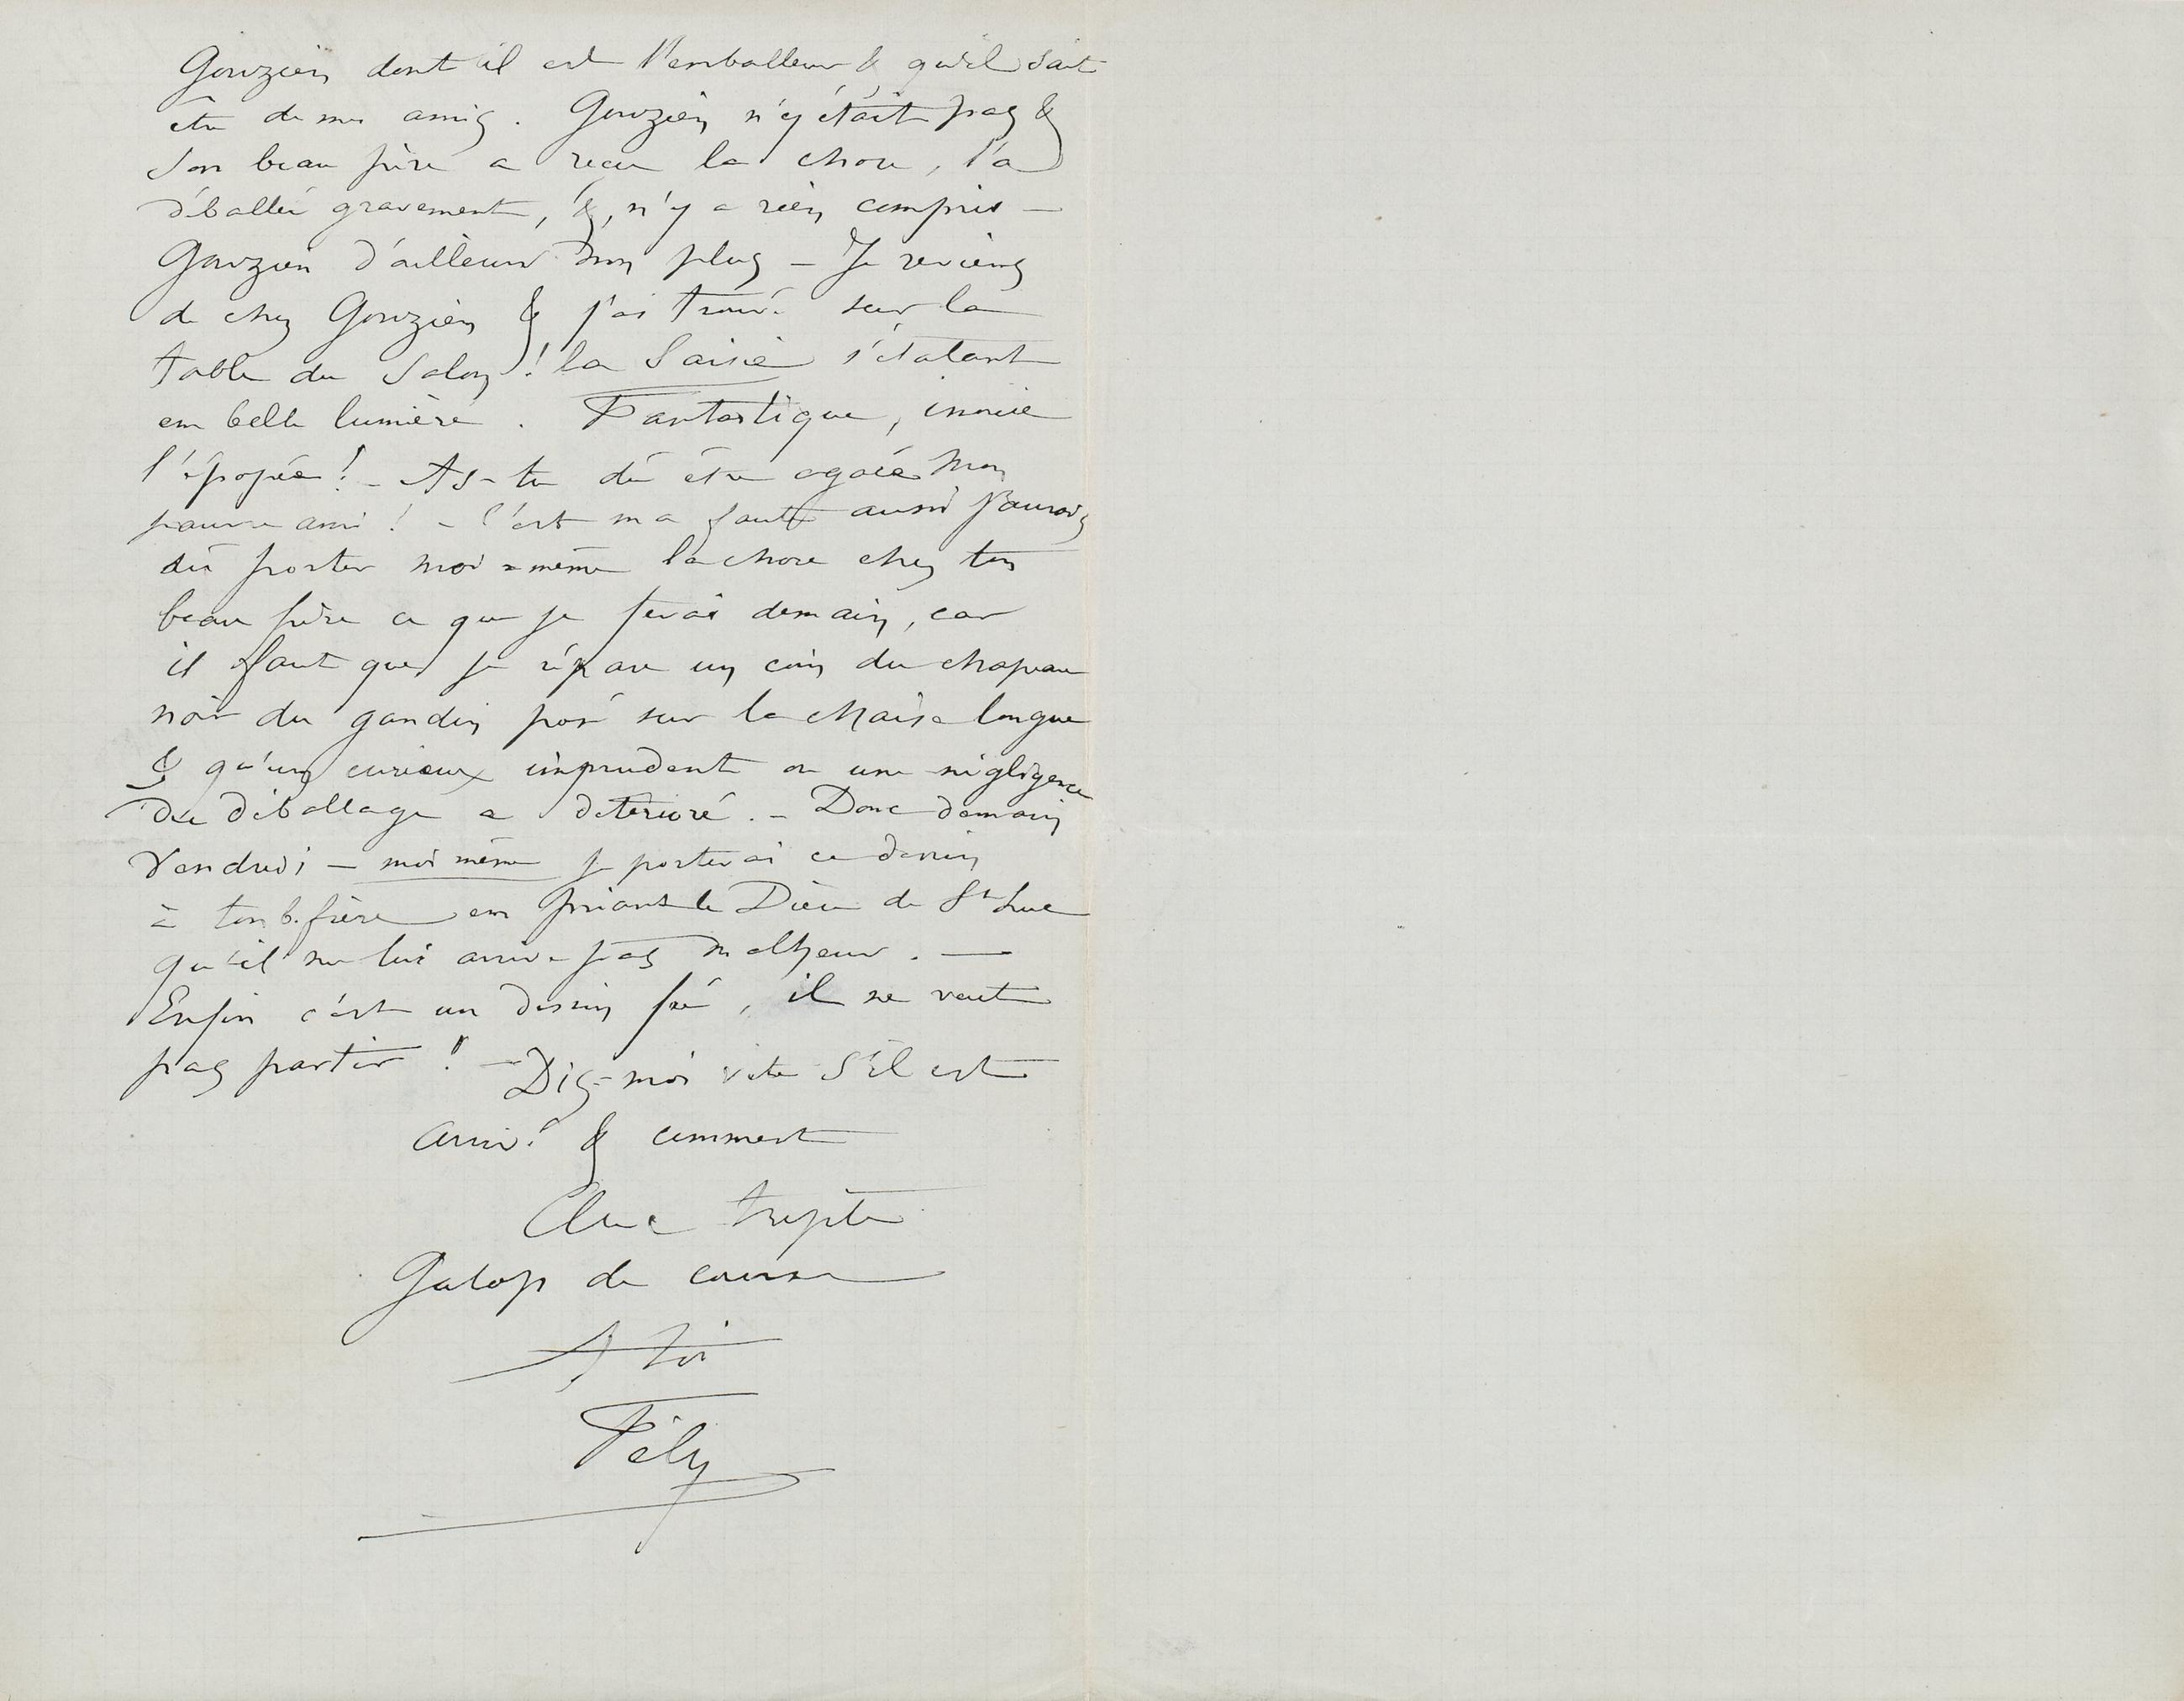 Gouzien dont il est l'emballeur & qu'il sait
être de mes amis. Gouzien n'y était pas &
son beau père a reçu la chose, l'a
déballée gravement, &, n'y a rien compris —
Gouzien d'ailleurs non plus — Je reviens
de chez Gouzien & j'ai trouvé sur la
table du salon ! la Saisie s'étalant
en belle lumière. Fantastique, inouïe
l'épopée ! — As-tu dû être agacé mon
pauvre ami ! — C'est ma faute aussi j'aurais
dû porter moi-même la chose chez ton
beau frère ce que je ferai demain, car
il faut que je répare un coin du chapeau
noir du gandin posé sur la chaise longue
& qu'un curieux imprudent ou une négligence
du déballage a détérioré. — Donc demain
Vendredi — moi même je porterai ce dessin
à ton b. frère en priant le Dieu de St Luc
qu'il ne lui arrive pas malheur. —
Enfin c'est un dessin fée, il ne veut
pas partir ! — Dis-moi vite s'il est
arrivé & comment
Galop de course
A toi
Fély